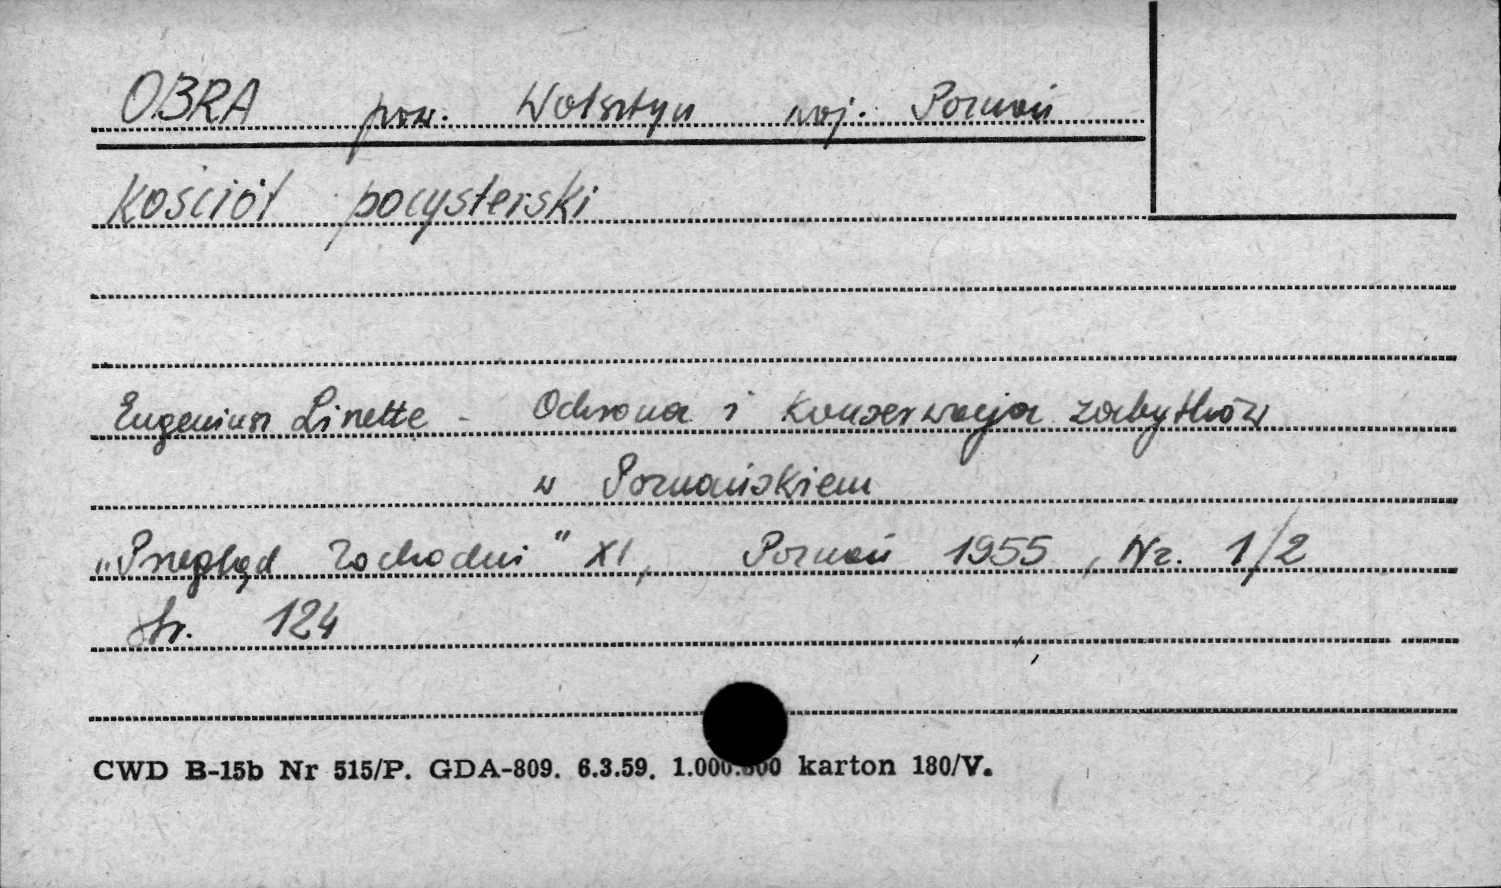 OBRA pow. Wolsztyn woj. Poznań
Kościół pocysterski
Eugeniusz Linette - Ochrona i Konserwacja zabytków
w Poznańskiem
„Przegląd Zachodni" XI, Poznań 1955, Nr. 1/2
str. 124
CWD B-15b Nr 515/P. GDA-809. 6.3.59. karton 180/V.